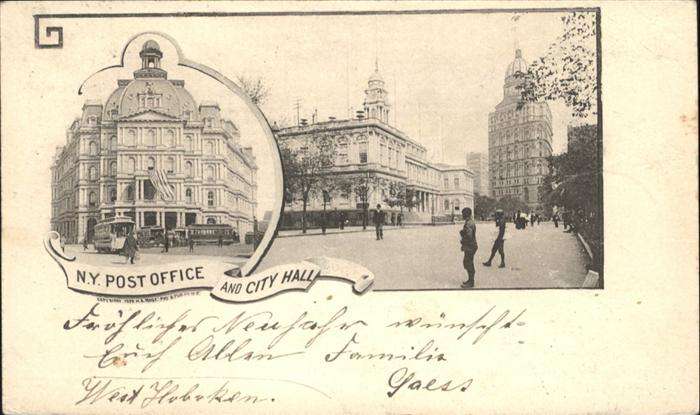 N.Y. POST OFFICE
AND CITY HALL
Fröhliches Neujahr wünscht
Euch Allen Familie
West Hoboken. Gaess